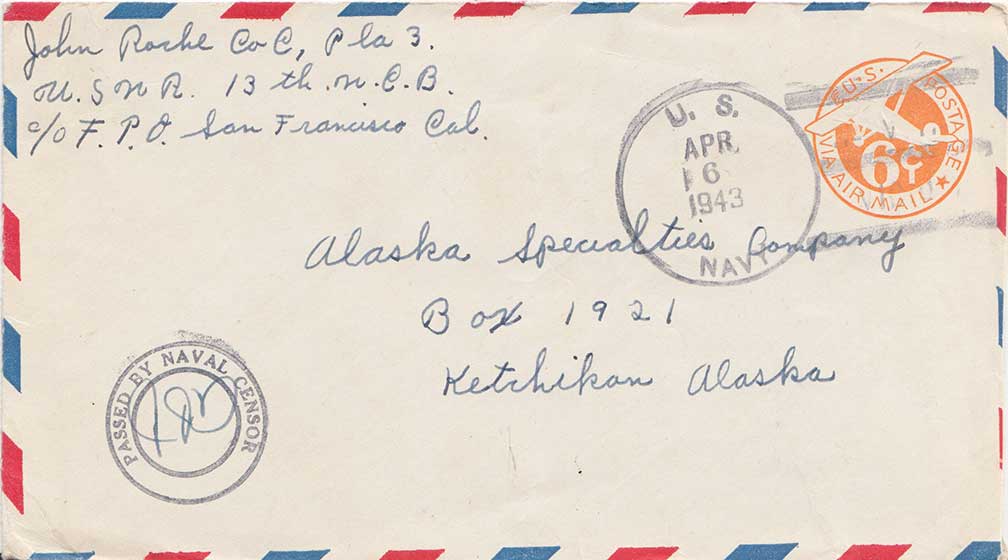 John Roche Co C, Pla 3.
U.S.N.R. 13th. N.C.B.
c/o F.P.O. San Francisco Cal.
U. S.
APR
6
1943
NAVY
U.S. POSTAGE
6¢
VIA AIR MAIL
Alaska Specialties Company
Box 1921
Ketchikan Alaska
PASSED BY NAVAL CENSOR